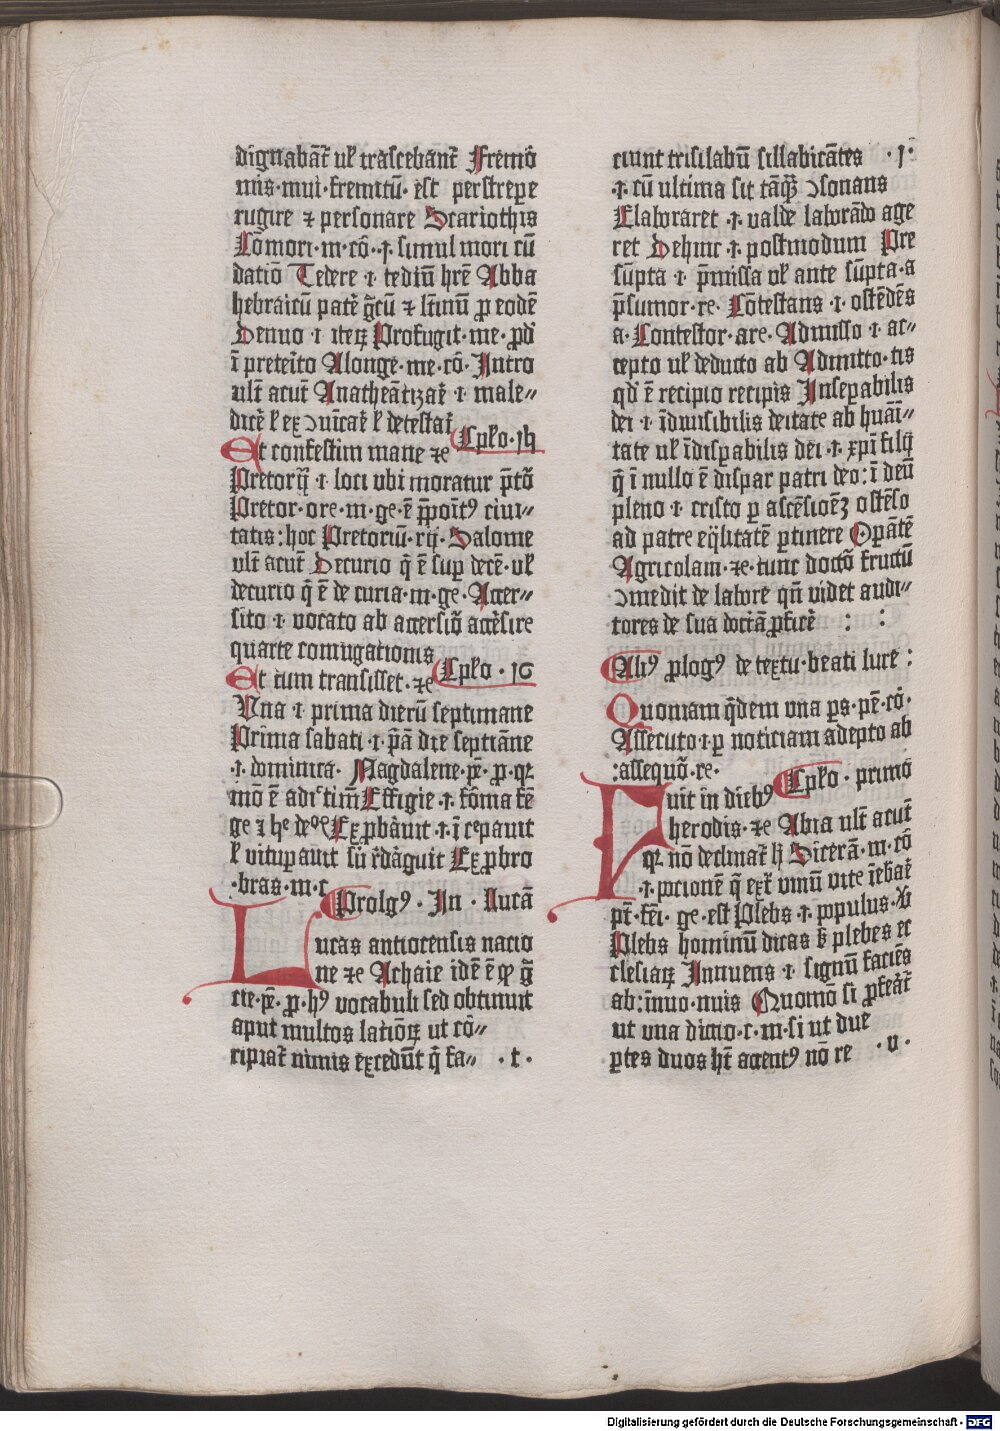 dignabāt̄ ul̵ trāscebānt̄ Fremo᷑
mis·mui·fremitū· est perstrepe
rugire ⁊ personare Scariothis
Cōmori·m·cō·.ı. simul mori cū
datiō Tedere ·ı· tediū hr̄e Abba
hebraicū patr̄ gr̄cū ⁊ lr̄inū p̱ eodē
Denuo ·ı· iteꝝ Profugit·me·pd̄
ī preteīto Alonge·me·cō·Intro
ult̄ acut̄ Anatheātizar̄ ·ı· male〃
dicr̄ ł ex ꝯuīcar̄ ł detestar̄
Cpło·15
Et confestim mane ⁊c
Pretorij̄ ·ı· loci ubi moratur p̄tō
Pretor·ore·m·ge·ē p̄poit̄ꝰ ciui〃
tatis: hoc Pretoriū·rij·Salome
ult̄ acut̄ Decurio q̄ ē sup̱ decē·ul̵
decurio q̄ ē de curia·m·ge·Accer〃
sito ·ı· vocato ab accersiō accersire
quarte coniugationis
Cpło·16
Et cum transisset·⁊c
Una ·ı· prima dierū septimane
Prima sabati ·ı· p̄a die septiāne
·ı· dominica· Magdalene·p̄·p̱·qꝛ
Effigie ·ı· fōma
Exp̱bāuit ·ı· īcepauit
ł vitup̱auit
Exp̱bro
·bras·m·c
Prolgꝰ·In·Lucā
Lucas antiocensis nacio
ne ⁊c Achaie idē ē qđ
vocabuli sed obtinuit
aput multos latiōꝝ ut cō〃
cipiat̄ nimis excedūt q̄ fa〃 ·t·
ciunt trisilabū sillabicātes ·ı·
·ı· cū ultima sit tāq̄ꝫ ꝯsonans
Elaboraret ·ı· valde laborādo age
ret Dehinc ·ı· postmodum Pre
sūpta ·ı· p̄missa ul̵ ante sūpta·a
p̄sumor·re· Cōtestans ·ı· ostēdēs
a·Contestor·are·Admisso ·ı· ac〃
cepto ul̵ deducto ab Admitto·tis
qđ ē recipio recipis Insep̱abilis
dei ·ı· īdiuisibilis deitate ab huāi〃
tate ul̵ īdisp̱abilis dei ·ı· xp̄i filij
q̄ ī nullo ē dispar patri deo: ī deū
pleno ·ı· cristo p̱ ascēsioēꝫ ostēso
ad patre eq̄litatē p̱tinere Op̱ātē
Agricolam·⁊c·tunc doctō fructū
ꝯmedit de labore qn̄ videt audi〃
tores de sua doct̄a p̱ficēr : :
Aliꝰ p̱logꝰ de textu·beati luce:
Quoniam q̄dem vna ps·pē·cō·
Assecuto·ı·p̱ noticiam adepto ab
:assequō·re·
Cpło·primo
Fuit in diebꝰ
herodis·⁊c Abia ult̄ acut̄
qꝛ nō declinat̄ lj Sicerā·m·cō
·ı· pocionē q̄ extͣ vinū
pt̄·fēi·ge·est Plebs ·ı· populus·
Plebs hominū dicas ꝫ plebes ec
clesiaꝝ Innuens ·ı· signū faciēs
ab:īnuo·nuis Quomō si p̱ferat̄
ut vna dictio·c·m·si ut due
p̱tes duos hn̄t accentꝰ nō re ·v·
Digitalisierung gefördert durch die Deutsche Forschungsgemeinschaft · DFG